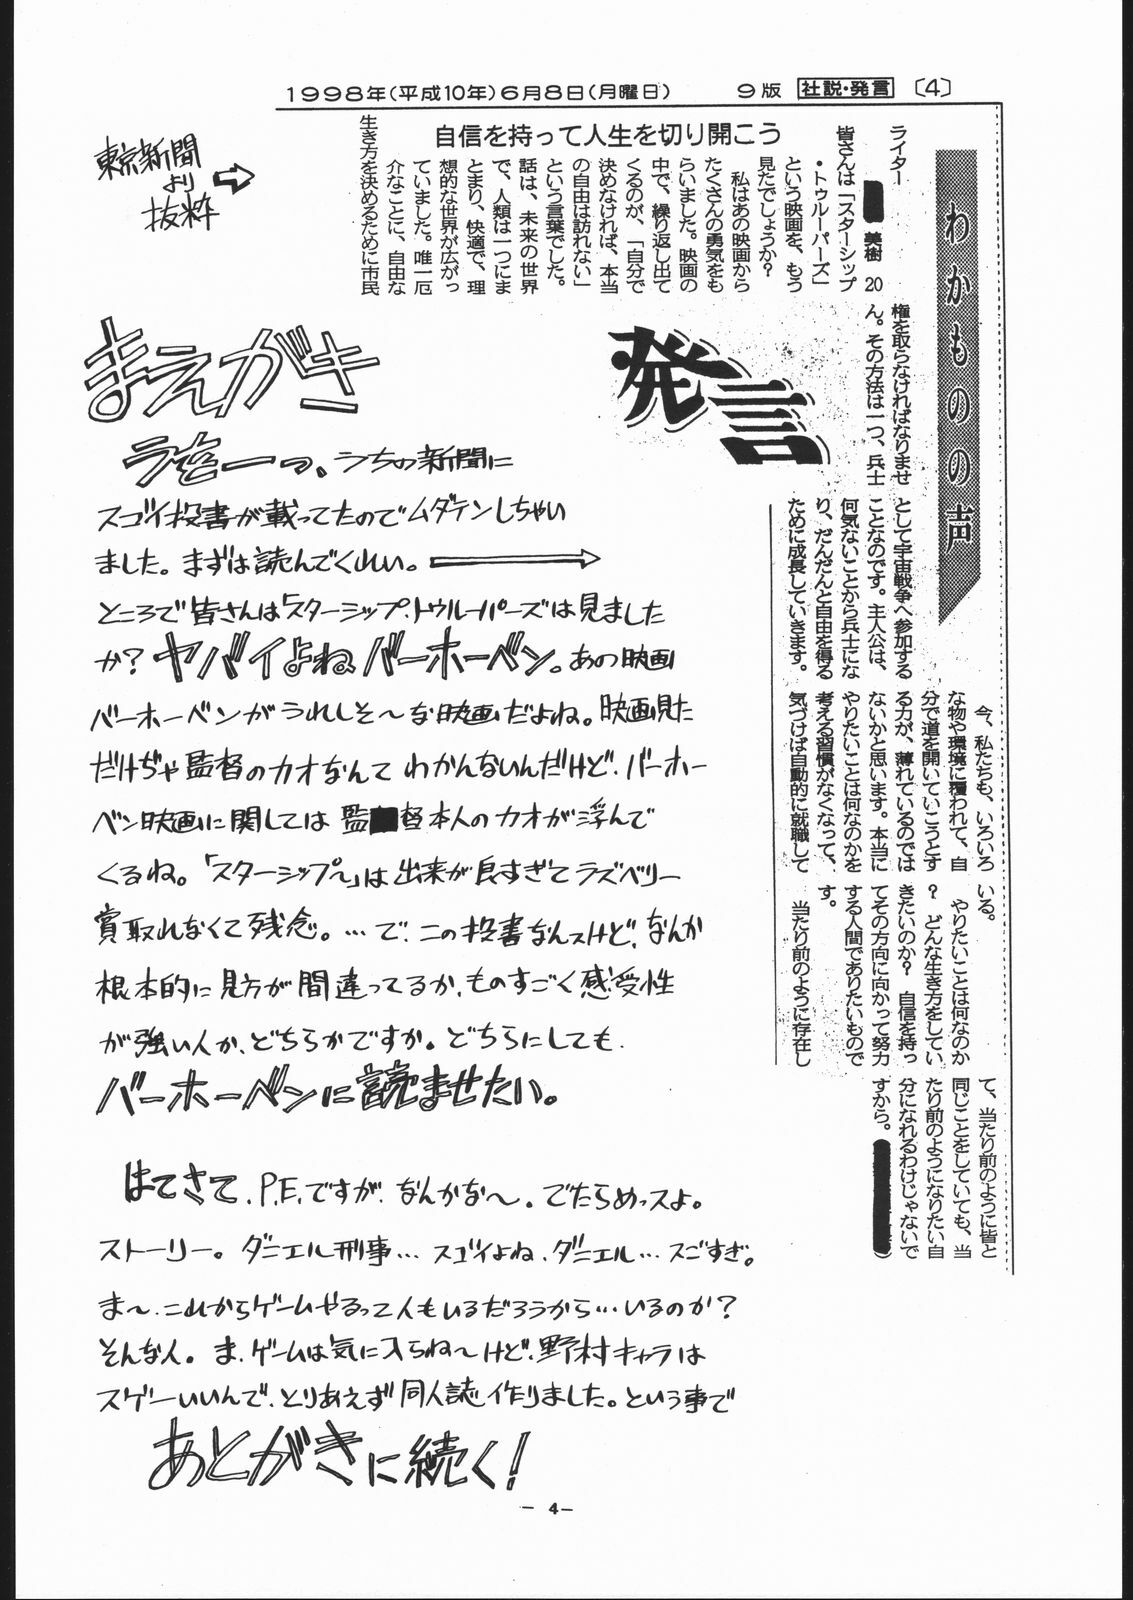 1998年(平成10年)6月8日(月曜日)　9版　社説・発言　〔4〕
東京新聞
より
抜粋
わかものの声
発言
自信を持って人生を切り開こう
ライター
美樹　20
皆さんは「スターシップ
・トゥルーパーズ」
という映画を、もう
見たでしょうか?
私はあの映画から
たくさんの勇気をも
らいました。映画の
中で、繰り返し出て
くるのが、「自分で
決めなければ、本当
の自由は訪れない」
という言葉でした。
話は、未来の世界
で、人類は一つにま
とまり、快適で、理
想的な世界が広がっ
ていました。唯一厄
介なことに、自由な
生き方を決めるために市民
権を取らなければなりませ
ん。その方法は一つ、兵士
として宇宙戦争へ参加する
ことなのです。主人公は、
何気ないことから兵士にな
り、だんだんと自由を得る
ために成長していきます。
今、私たちも、いろいろ
な物や環境に覆われて、自
分で道を開いていこうとす
る力が、薄れているのでは
ないかと思います。本当に
やりたいことは何なのかを
考える習慣がなくなって、
気づけば自動的に就職して
いる。
やりたいことは何なのか
?　どんな生き方をしてい
きたいのか?　自信を持っ
てその方向に向かって努力
する人間でありたいもので
す。
当たり前のように存在し
て、当たり前のように皆と
同じことをしていても、当
たり前のようになりたい自
分になれるわけじゃないで
すから。
まえがき
うちの新聞に
スゴイ投書が載ってたのでムダテンしちゃい
ました。まずは読んでくれい。
ところで皆さんは「スターシップ・トゥルーパーズ」は見ました
か?ヤバイよねバーホーベン。あの映画
バーホーベンがうれしそ〜な映画だよね。映画見た
だけぢゃ監督のカオなんてわかんないんだけど、バーホー
ベン映画に関しては監督本人のカオが浮んで
くるね。「スターシップ〜」は出来が良すぎてラズベリー
賞取れなくて残念。…で、この投書なんスけど、なんか
根本的に見方が間違ってるか、ものすごく感受性
が強い人か、どちらかですか。どちらにしても、
バーホーベンに読ませたい。
はてさて、P.E.ですが、なんかな〜。でたらめっスよ。
ストーリー。ダニエル刑事…スゴイよね、ダニエル…スごすぎ。
ま〜、これからゲームやるって人もいるだろうから…いるのか?
そんな人。ま、ゲームは気に入らね〜けど、野村キャラは
スゲーいいんで、とりあえず同人誌作りました。という事で
あとがきに続く!
- 4 -